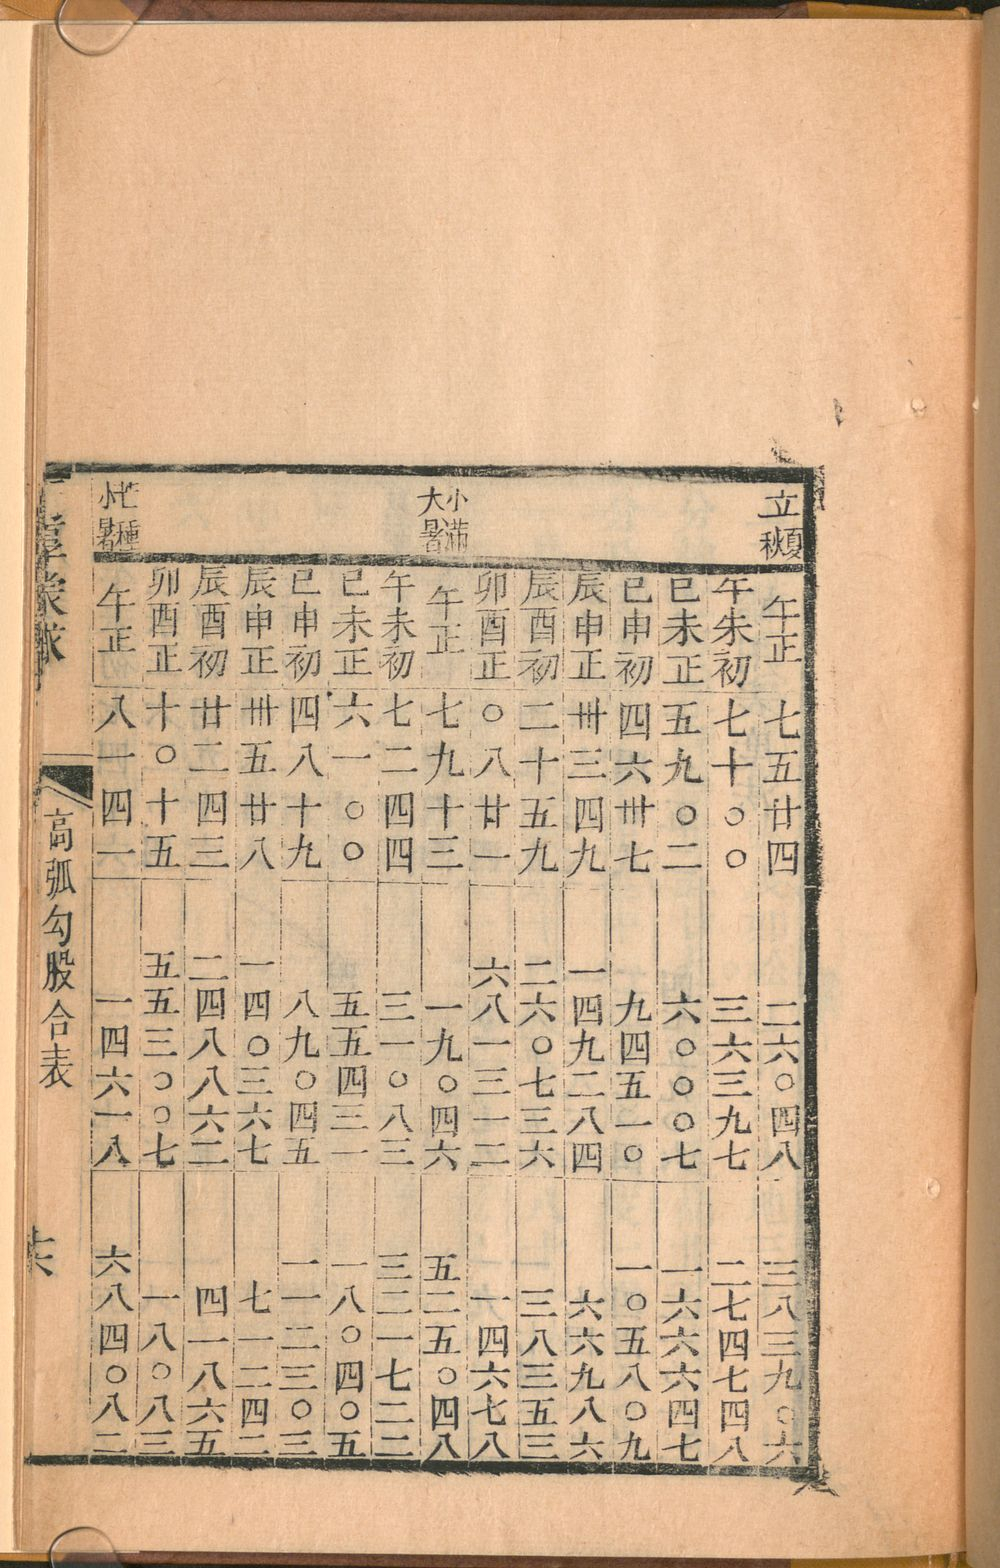 立夏立秋
午正 七五廿四 二六〇四八 三八三九〇六
午未初 七十〇〇 三六三九七 二七四七四八
巳未正 五九〇二 六〇〇〇七 一六六六四七
巳申初 四六卅七 九四五一〇 一〇五八〇九
辰申正 卅三四九 一四九二八四 六六九八六
辰酉初 二十五九 二六〇七三六 三八三五三
卯酉正 〇八廿一 六八一三一二 一四六七八
小滿大暑
午正 七九十三 一九〇四六 五二五〇四八
午未初 七二四四 三一〇八三 三二一七二二
巳未正 六一〇〇 五五四三一 一八〇四〇五
巳申初 四八十九 八九〇四五 一一二三〇三
辰申正 卅五廿八 一四〇三六七 七一二四二
辰酉初 廿二四三 二四八八六二 四一八六五
卯酉正 十〇十五 五五三〇〇七 一八〇八三
芒種小暑
午正 八一四一 一四六一八 六八四〇八二
蒙求
高弧勾股合表